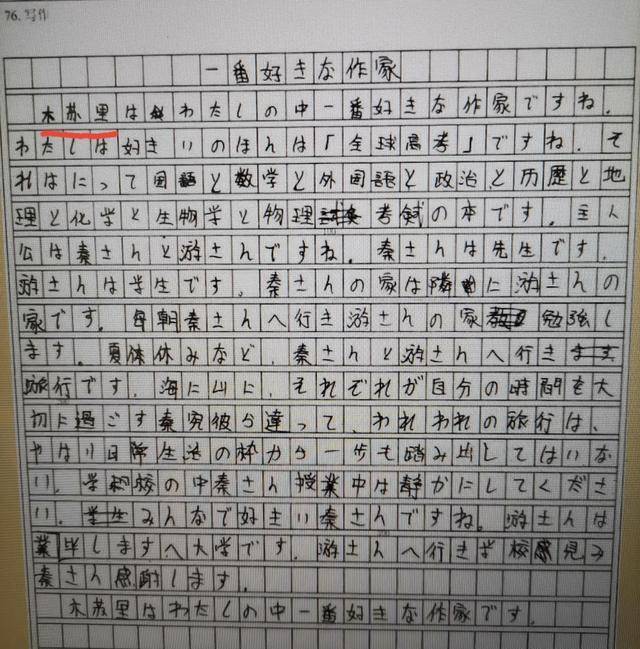 76. 写作
一番好きな作家
木苏里はわたしの中一番好きな作家ですね。
わたしは好きいのほんは「全球高考」ですね。そ
れはにって国語と数学と外国語と政治と历歴と地
理と化学と生物学と物理考試の本です。主人
公は秦さんと游さんですね。秦さんは先生です。
游さんは学生です。秦さんの家は隣に游さんの
家です。毎朝秦さんへ行き游さんの家勉強し
ます。夏体休みなど、秦さんと游さんへ行き
旅行です。海に山に、それぞれが自分の時間を大
切に過ごす秦究彼ら違って、われわれの旅行は、
やはり日常生活の枠から一歩も踏み出してはいな
い。学校の中秦さん授業中は静かにしてくださ
い。みんなで好きい秦さんですね。游さんは
業毕しますへ大学です。游さんへ行き学校見み
秦さん感謝します。
木苏里はわたしの中一番好きな作家です。